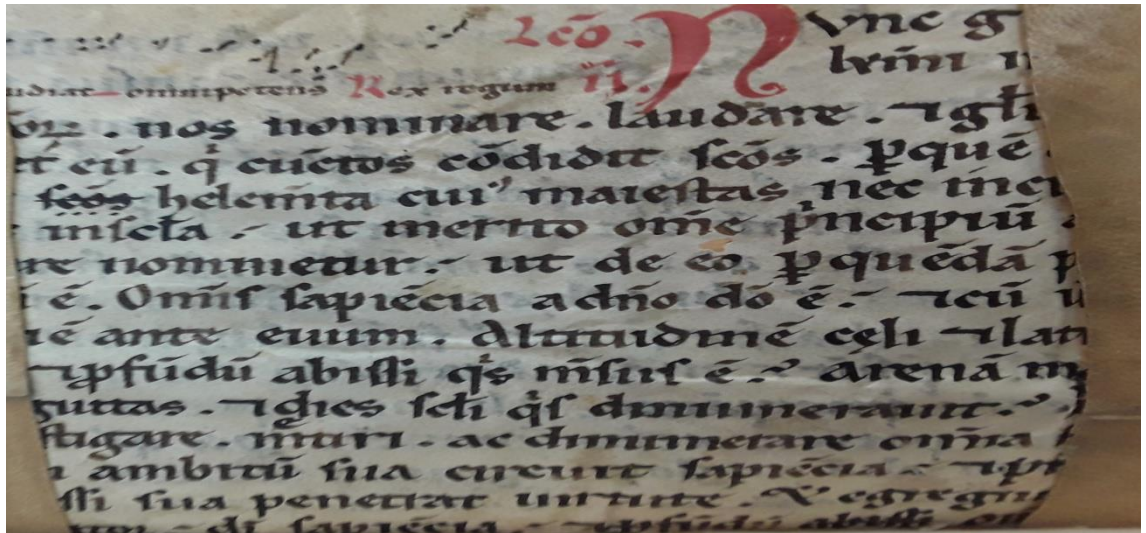 Lcō. N Vnc g
udiat omnipotens Rex regum ii. leriñ n
bor . nos nominare . laudare . ⁊ gl̄i
t cū . q̇ cūctos cōdidit sc̄os . ꝑquē
sc̄os helemīta cui' maiestas nec īnci
insc̄la . ut merito om̄e pͥncipiū
re nominetur . ut de eo ꝑ quēdā p
ē . Om̄is sapiēcia a dn̄o dō ē . ⁊ cū
ē ante euum . Altitudinē cęli ⁊ lati
⁊ ꝓfūdū abissi q̇s m̄sus ē . arenā m
guttas . ⁊ dies sc̄li q̇s dinumerauit .
stigare . mari . ac dinumerare om̄ia
ambitū sua circuit sapiēcia . ⁊
ssi sua penetrat uirtute . egregiu
di sapiēcia . ⁊ ꝓfūdū abissi